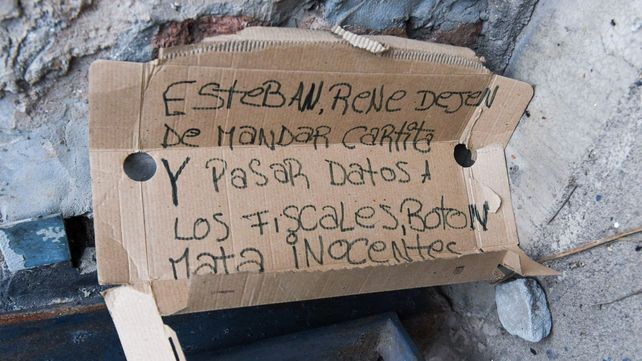 ESTEBAN, RENE DEJEN
DE MANDAR CARTITA
Y PASAR DATOS A
LOS FISCALES, BOTON
MATA INOCENTES